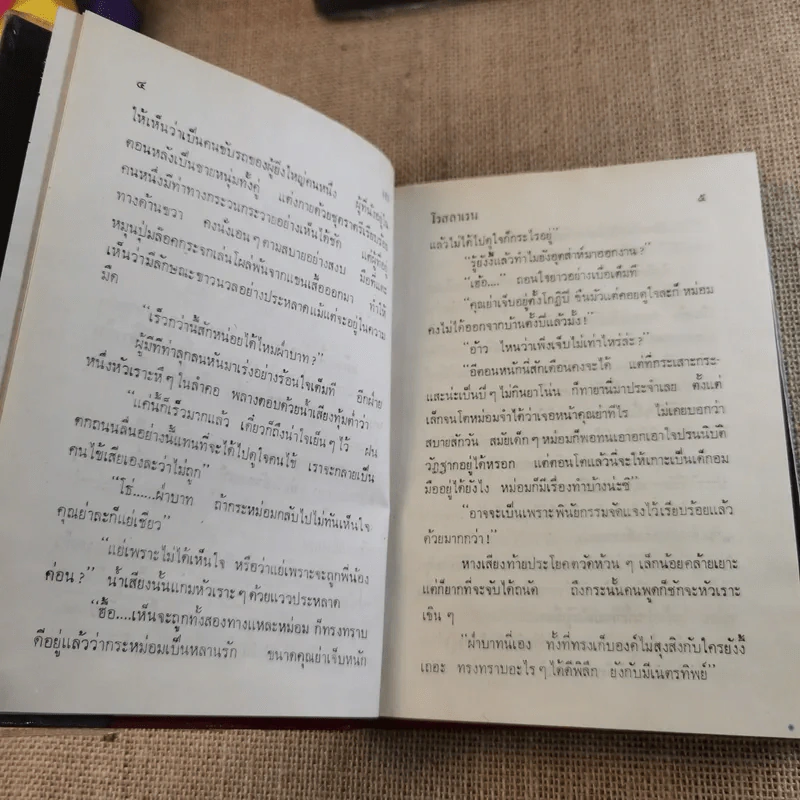 ๔
ให้เห็นว่าเป็นคนขับรถของผู้ยิ่งใหญ่คนหนึ่ง ผู้ที่นั่งอยู่ใน
ตอนหลังเป็นชายหนุ่มทั้งคู่ แต่งกายด้วยชุดราตรีเรียบร้อย
คนหนึ่งมีท่าทางกระวนกระวายอย่างเห็นได้ชัด แต่ผู้ที่อยู่
ทางด้านขวา คงนั่งเอน ๆ ตามสบายอย่างสงบ มือที่แตะ
หมุนปุ่มล๊อคกระจกเล่นโผล่พ้นจากแขนเสื้อออกมา ทำให้
เห็นว่ามีลักษณะขาวนวลอย่างประหลาดแม้แต่จะอยู่ในความ
มืด
“เร็วกว่านี้สักหน่อยได้ไหมฝ่าบาท?”
ผู้มีทีท่าลุกลนหันมาเร่งอย่างร้อนใจเต็มที อีกฝ่าย
หนึ่งหัวเราะหึ ๆ ในลำคอ พลางตอบด้วยน้ำเสียงทุ้มต่ำว่า
“แค่นี้ก็เร็วมากแล้ว เดี๋ยวก็ถึงน่าใจเย็น ๆ ไว้ ฝน
ตกถนนลื่นอย่างนี้แทนที่จะได้ไปดูใจคนไข้ เราจะกลายเป็น
คนไข้เสียเองละว่าไม่ถูก”
“โธ่......ฝ่าบาท ถ้ากระหม่อมกลับไปไม่ทันเห็นใจ
คุณย่าละก็แย่เชียว”
“แย่เพราะไม่ได้เห็นใจ หรือว่าแย่เพราะจะถูกพี่น้อง
ค่อน?” น้ำเสียงนั้นแกมหัวเราะ ๆ ด้วยแววประหลาด
“ฮื้อ....เห็นจะถูกทั้งสองทางแหละหม่อม ก็ทรงทราบ
ดีอยู่แล้วว่ากระหม่อมเป็นหลานรัก ขนาดคุณย่าเจ็บหนัก
โรสลาเรน
๕
แล้วไม่ได้ไปดูใจก็กระไรอยู่”
“รู้ยังงี้แล้วทำไมยังอุตส่าห์มาออกงาน?”
“เฮ้อ....” ถอนใจยาวอย่างเบื่อเต็มที
“คุณย่าเจ็บอยู่ตั้งโกฏิปี ขืนมัวแต่คอยดูใจละก็ หม่อม
คงไม่ได้ออกจากบ้านตั้งปีแล้วมั้ง!
“อ้าว ไหนว่าเพิ่งเจ็บไม่เท่าไหร่ล่ะ?”
“อีตอนหนักนี่สักเดือนคงจะได้ แต่ที่กระเสาะกระ-
แสะน่ะเป็นปี ๆ ไม่กินยาโน่น ก็ทายานี่มาประจำเลย ตั้งแต่
เล็กจนโตหม่อมจำได้ว่าเจอหน้าคุณย่าทีไร ไม่เคยบอกว่า
สบายสักวัน สมัยเด็ก ๆ หม่อมก็พอทนเอาอกเอาใจปรนนิบัติ
วัฏฐากอยู่ได้หรอก แต่ตอนโตแล้วนี่จะให้เกาะเป็นเด็กอม
มืออยู่ได้ยังไง หม่อมก็มีเรื่องทำบ้างน่ะซิ”
“อาจจะเป็นเพราะพินัยกรรมจัดแจงไว้เรียบร้อยแล้ว
ด้วยมากกว่า!”
หางเสียงท้ายประโยคตวัดห้วน ๆ เล็กน้อยคล้ายเยาะ
แต่ก็ยากที่จะจับได้ถนัด ถึงกระนั้นคนพูดก็ชักจะหัวเราะ
เขิน ๆ
“ฝ่าบาทนี่เอง ทั้งที่ทรงเก็บองค์ไม่สุงสิงกับใครยังงี้
เถอะ ทรงทราบอะไร ๆ ได้ดีพิลึก ยังกับมีเนตรทิพย์”